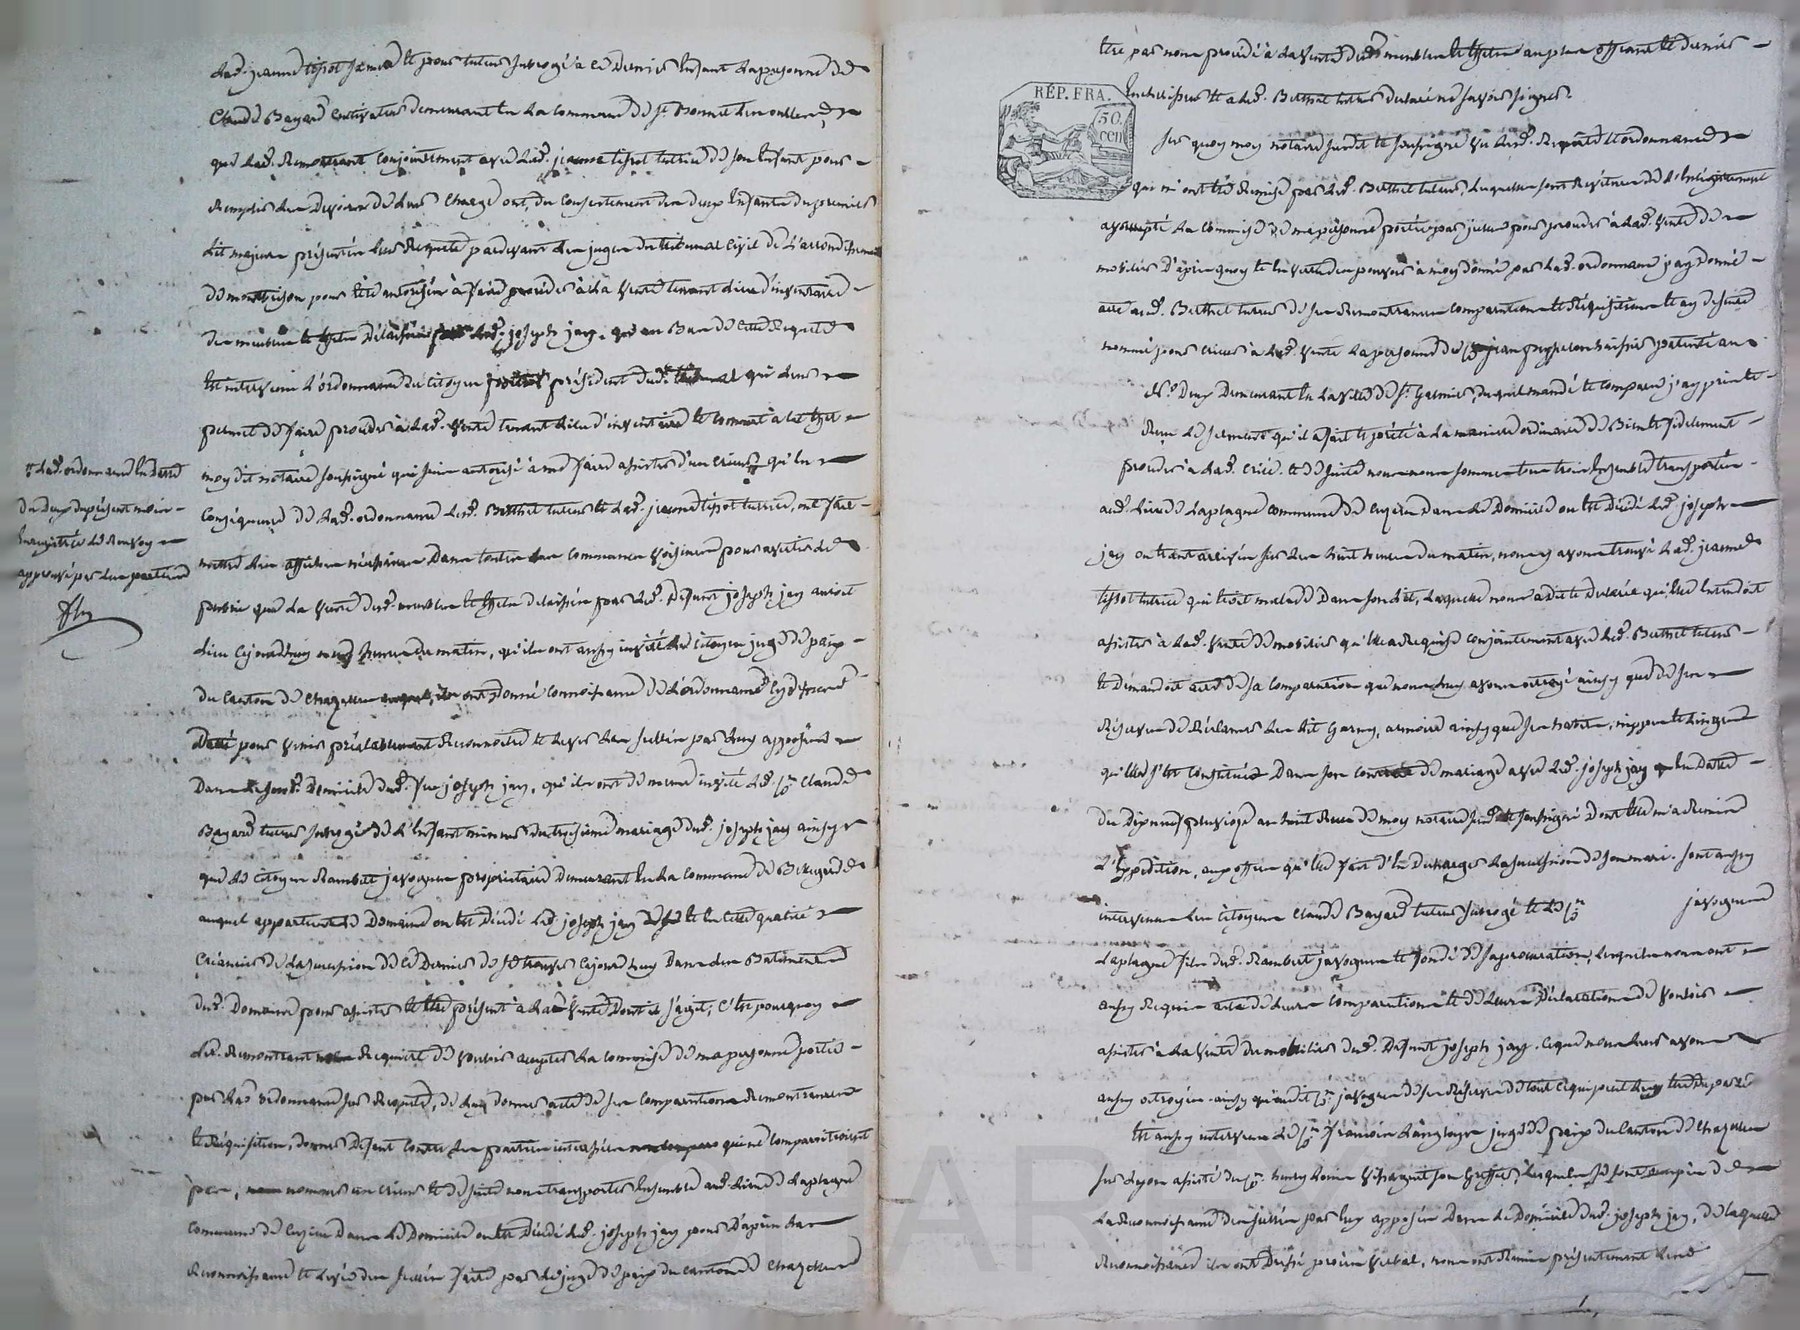 lad. jeanne tissot sa mere et pour tuteur subrogé a ce dernier enfant la personne de
Claude Bayard cultivateur demeurant en la commune de St. Bonnet les oulles
que led. remontrant conjointement avec lad. jeanne tissot tutrice de son enfant pour
remplir les devoirs de leur charge ont, du consentement des deux enfants du premier
lit majeurs présenté leur Requete pardevant les juges du tribunal civil de l'arrondissement
de montbrison pour être autorisés à faire procéder à la vente tenant lieu d'inventaire
des meubles et effets délaissés par led. joseph jay, que au Bas de cette Requete
est intervenu l'ordonnance du citoyen président dud. tribunal qui leur
permet de faire procéder à lad. vente tenant lieu d'inventaire et commet à cet effet
moy dit notaire soussigné qui suis autorisé à me faire assister d'un crieur, qu'en
conséquence de lad. ordonnance led. Berthet tuteur et lad. jeanne tissot tutrice, ont fait
mettre des affiches nécessaires dans toutes les communes voisines pour avertir le
public que la vente desd. meubles et effets délaissés par led. défunt joseph jay auroit
lieu cejourdhuy heures du matin, qu'ils ont aussy invité le citoyen juge de paix
du canton de Chazelles ont donné connoissance de l'ordonnance
pour venir préalablement reconnoitre et lever les scellés par luy apposés
dans le domicile dud. feu joseph jay, qu'ils ont de meme invité led. Cn. Claude
Bayard tuteur subrogé de l'enfant mineur du troisieme mariage dud. joseph jay ainsy
que le citoyen Rambert javogues propriétaire demeurant en la commune de Bellegarde
auquel appartient le Domaine ou est décédé led. joseph jay et en cette qualité
créancier de la succession de ce dernier de se trouver cejourdhuy dans les Batiments
dud. Domaine pour assister et être présent à la vente dont il s'agit, c'est pourquoy
led. remontrant Requiert de vouloir accepter la commise de ma personne portée
par lad. ordonnance sur Requete, de luy donner acte de ses comparution remontrances
et Réquisition, donner défaut contre les parties intéressées qui ne comparoitroient
pas, nommer un crieur et de suite nous transporter ensemble aud. lieu de Laplagne
commune de Cuzieu dans le Domicile ou est décédé led. joseph jay pour d'apres la
reconnoissance et levée des scellés faite par le juge de paix du canton de Chazelles
lad. ordonnance en date
du deux du présent mois
enregistrée le renvoy
approuvé par les parties
être par nous procédé à la vente desd. meubles et effets au plus offrant et dernier
RÉP. FRA.
50.
cen
enchérisseur et a led. Berthet tuteur déclaré ne savoir signer.
Sur quoy moy notaire susdit et soussigné vu lesd. Requete et ordonnance
qui m'ont été remises par led. Berthet tuteur, lesquelles sont revêtues de l'enregistrement
ay accepté la commise de ma personne portée par icelles pour procéder à lad. vente de
mobilier d'après quoy et en vertu des pouvoirs à moy donné par lad. ordonnance j'ay donné
acte aud. Berthet tuteur de ses remontrances comparution et Réquisitions et ay de suite
nommé pour crieur à lad. vente la personne de Cn. jean huissier patenté au
No. Deux demeurant en la ville de St. Galmier, lequel mandé et comparu j'ay pris et
reçu le serment qu'il a fait et prêté à la maniere ordinaire de Bien et fidelement
procéder à lad. criée. et de suite nous nous sommes tous trois ensemble transportés
aud. lieu de Laplagne commune de Cuzieu dans le Domicile ou est décédé led. joseph
jay ou étant arrivés sur les huit heures du matin, nous y avons trouvé lad. jeanne
tissot tutrice qui étoit malade dans son lit, laquelle nous a dit et déclaré qu'elle entendoit
assister à lad. vente de mobilier qu'elle a Requise conjointement avec led. Berthet tuteur
et demandoit acte de sa comparution que nous luy avons octroyé ainsy que de ses
réserves de réclamer les lit garny, armoire ainsy que ses hardes, nippes et linges
qu'elle s'est constitués dans son contrat de mariage avec led. joseph jay en date
du dix neuf pluviose an huit reçu de moy notaire susd. et soussigné dont elle m'a remis
l'Expedition, aux offres qu'elle fait d'en décharger la succession de son mari. sont aussy
intervenus les citoyens Claude Bayard tuteur subrogé et le Cn. javogues
Laplagne fils dud. Rambert javogues et fondé de sa procuration, lesquels nous ont
aussy requis acte de leurs comparutions et de leurs déclarations de vouloir
assister à la vente du mobilier dud. défunt joseph jay. ce que nous leur avons
aussy octroyé. ainsy qu'audit Cn. javogues de ses réserves de tout ce qui peut luy être
Est aussy intervenu le Cn. juge de paix du canton de Chazelles
sur Lyon assisté du Cn. son greffier, lesquels se sont occupés de
la reconnoissance des scellés par luy apposés dans le Domicile dud. joseph jay, de laquelle
reconnoissance ils ont dressé procès verbal, nous ont remis présentement